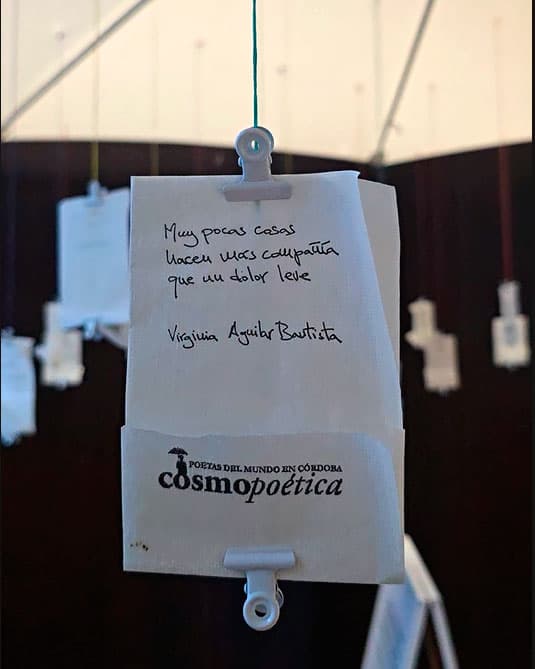 Muy pocas cosas
hacen más compañía
que un dolor leve
Virginia Aguilar Bautista
POETAS DEL MUNDO EN CÓRDOBA
cosmopoética